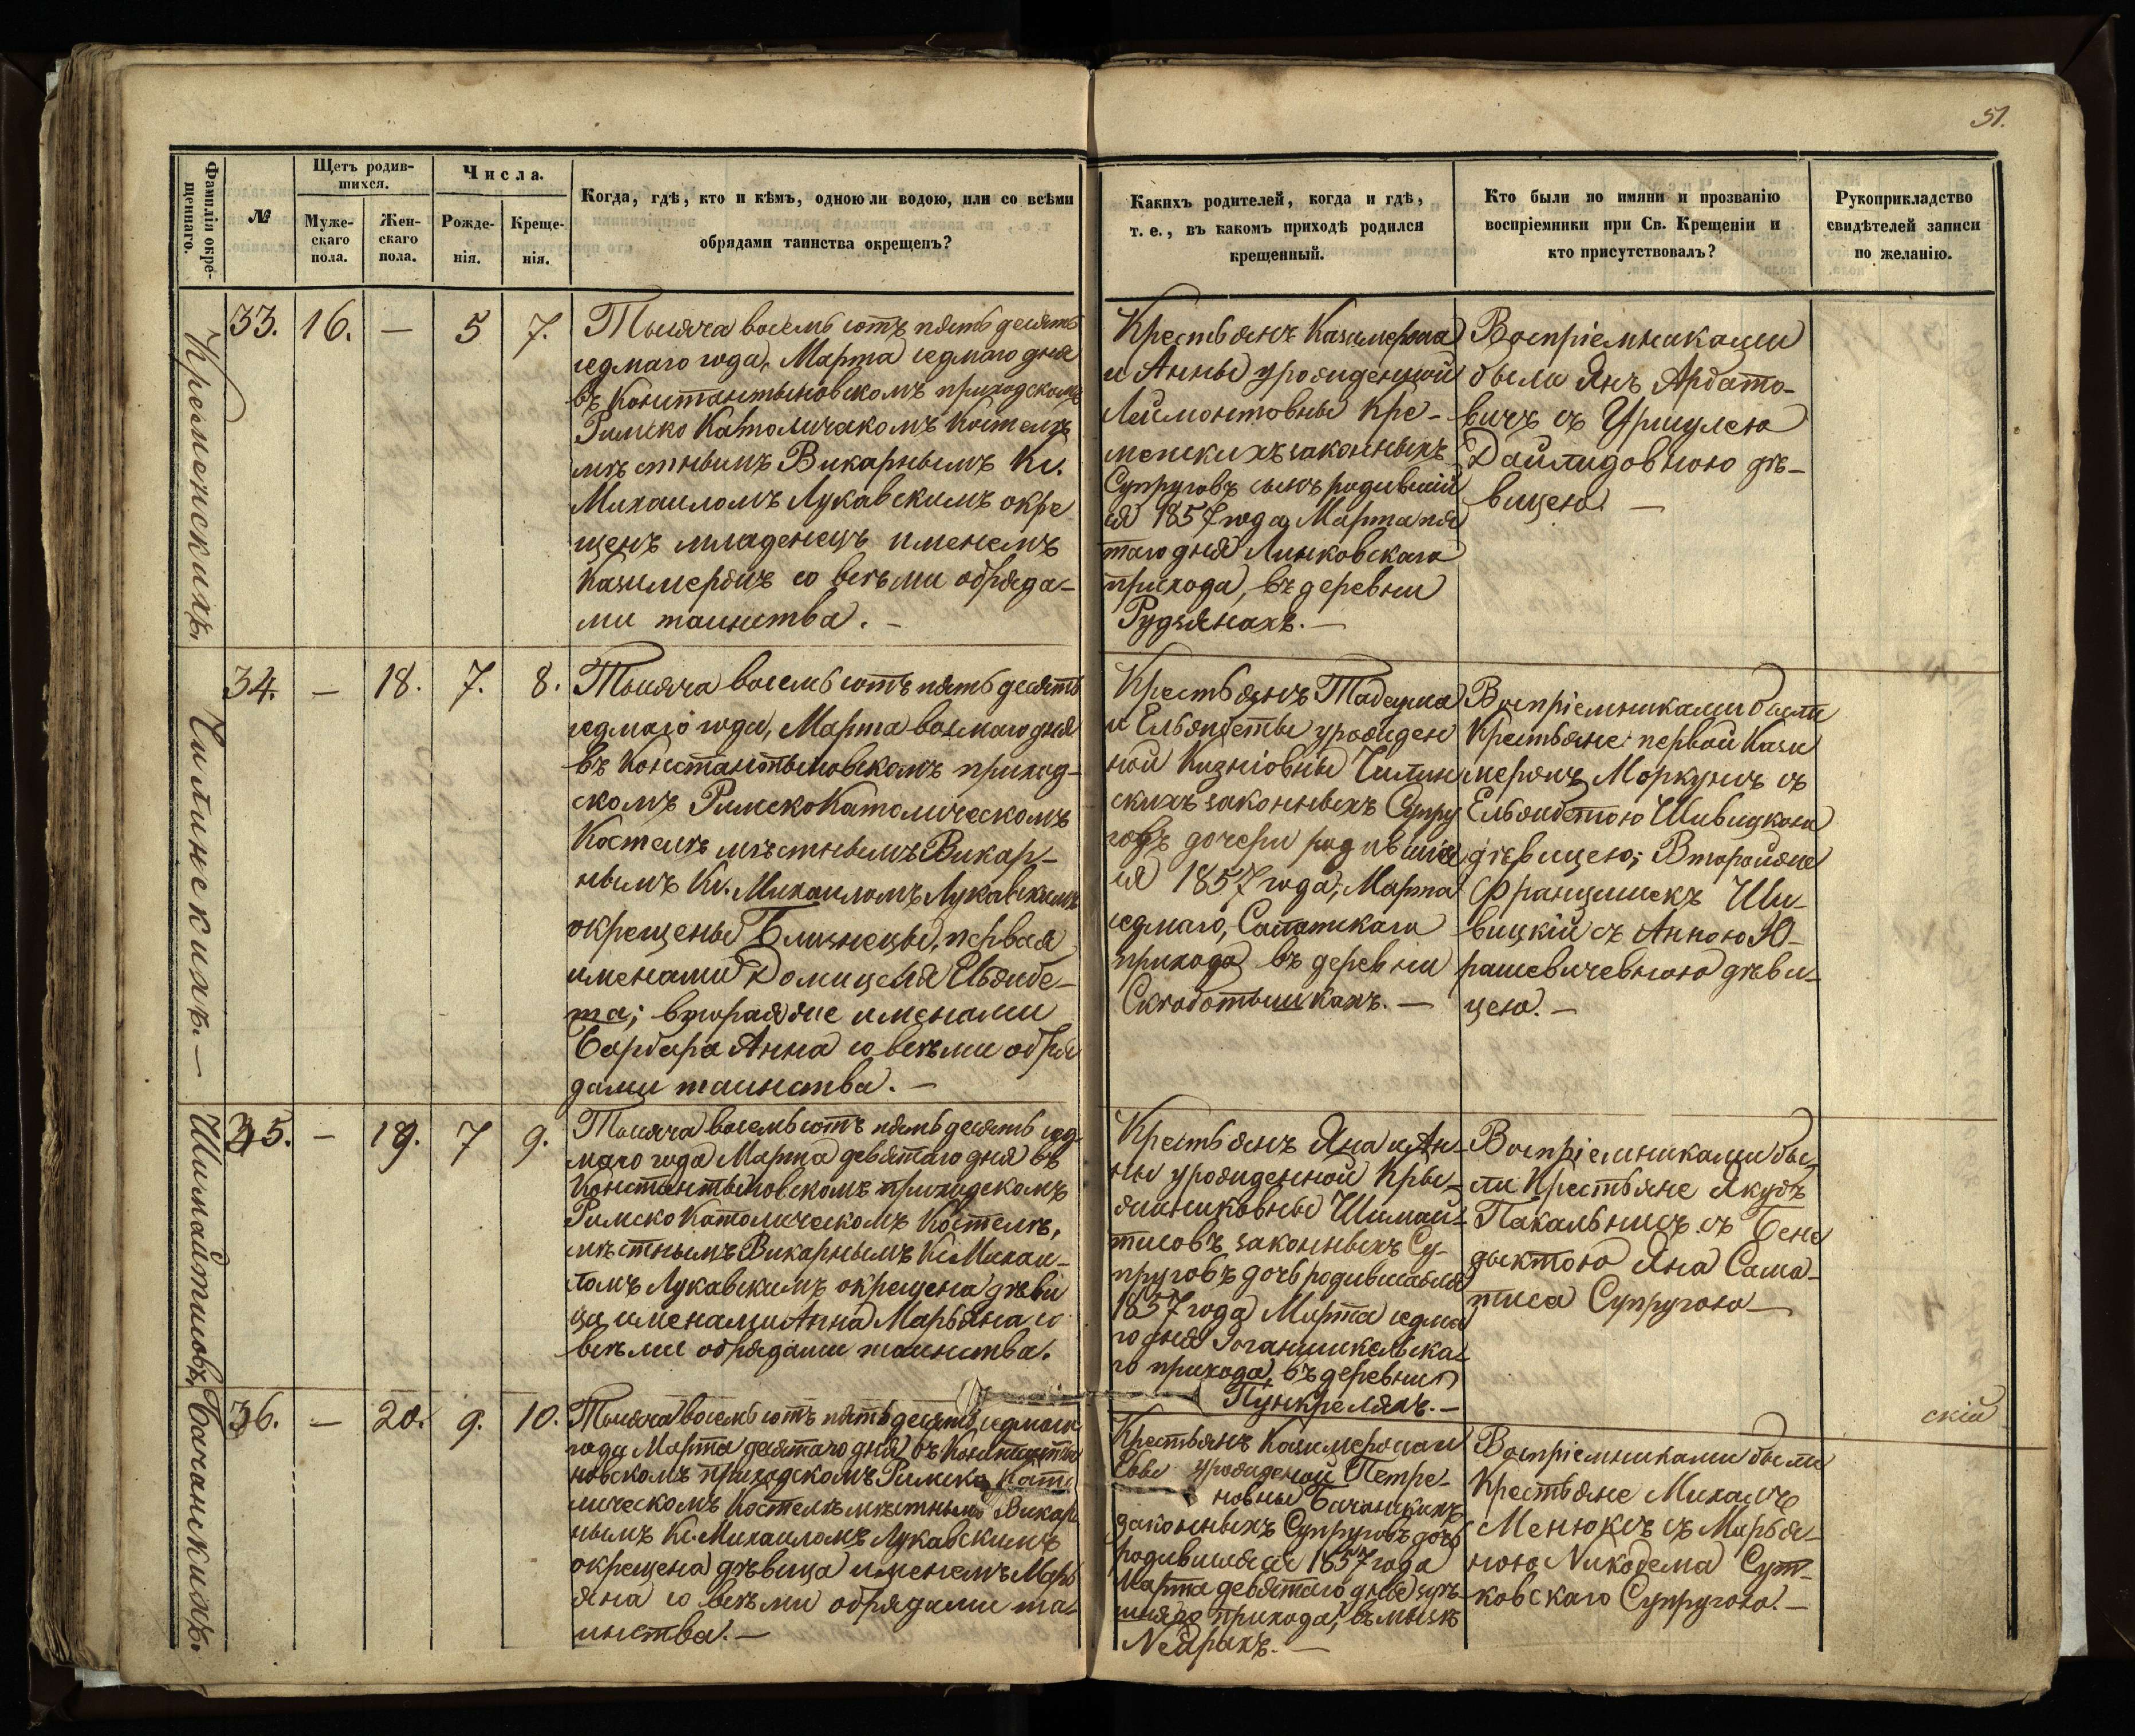 51.
Фамилія окре-
щеннаго.
№
Щетъ родив-
шихся.
Муже-
скаго
пола.
Жен-
скаго
пола.
Числа.
Рожде-
нія.
Креще-
нія.
Когда, гдѣ, кто и кѣмъ, одною ли водою, или со всѣми
обрядами таинства окрещенъ?
Какихъ родителей, когда и гдѣ,
т. е., въ какомъ приходѣ родился
крещенный.
Кто были по имяни и прозванію
воспріемники при Св. Крещеніи и
кто присутствовалъ?
Рукоприкладство
свидѣтелей записи
по желанію.
Кременскихъ.
33. 16. — 5 7.
Тысяча восемь сотъ пять десятъ
седмаго года, Марта седмаго дня
въ Константыновскомъ приходскомъ
Римско Католическомъ Костелѣ
мѣстнымъ Викарнымъ Кс.
Михаиломъ Лукавскимъ окре
щенъ младенецъ именемъ
Казимеръ со всѣми обряда-
ми таинства. —
Крестьянъ Казимера
и Анны урожденной
Леймонтовны Кре-
менскихъ законныхъ
Супруговъ сынъ родивший
ся 1857 года Марта пя
таго дня Линковскаго
прихода, въ деревни
Рудзянахъ. —
Воспріемниками
были Янъ Арбато-
вичъ съ Уршулею
Дайлидовною дѣ-
вицею. —
Чилинскихъ. —
34. — 18. 7. 8.
Тысяча восемь сотъ пять десятъ
седмаго года, Марта восмаго дня
въ Константыновскомъ приход-
скомъ Римско Католическомъ
Костелѣ мѣстнымъ Викар-
нымъ Кс. Михаиломъ Лукавскимъ
окрещены Близнецы, первая
именами Домицеля Ельжбе-
та; вторая же именами
Барбара Анна со всѣми обря
дами таинства. —
Крестьянъ Тадеуша
и Ельжбеты урожден
ной Чилин
скихъ законныхъ Супру
говъ дочери родившіе
ся 1857 года, Марта
седмаго, Салатскаго
прихода въ деревни
Скободтышкахъ. —
Воспріемниками были
Крестьяне: первой Кази
меръ Моркунъ съ
Ельжбетою Шивицкою
дѣвицею; Второй же
Францишекъ Ши-
вицкій съ Анною Ю-
рашевичевною дѣви-
цею. —
Шимайтисовъ.
35. — 19. 7 9.
Тысяча восемь сотъ пять десятъ сед
маго года Марта девятаго дня въ
Константыновскомъ приходскомъ
Римско Католическомъ Костелѣ,
мѣстнымъ Викарнымъ Кс. Михаи-
ломъ Лукавскимъ окрещена дѣви
ца именами Анна Марьяна со
всѣми обрядами таинства.
Крестьянъ Яна и Ан-
ны урожденной Кры-
жаниковны Шимай-
тисовъ законныхъ Су-
пруговъ дочь родившаяся
1857 года Марта седма
го дня
го прихода, въ деревни
Пункрелякъ. —
Воспріемниками бы-
ли Крестьяне Якубъ
Пакальнисъ съ Бене
дыктою Яна Сама-
тиса Супругою —
Бачанскихъ.
36. — 20. 9. 10.
Тысяча восемь сотъ пять десятъ седмаго
года Марта десятаго дня въ Константы
новскомъ приходскомъ Римско Като
лическомъ Костелѣ мѣстнымъ Викар
нымъ Кс. Михаиломъ Лукавскимъ
окрещена дѣвица именемъ Марь
яна со всѣми обрядами та-
инства. —
Крестьянъ Казимера и
Евы урожденной Петре-
новны Бачанскихъ
законныхъ Супруговъ дочь
родившаяся 1857 года
Марта девятаго дня здѣ
шняго прихода,
Воспріемниками были
Крестьяне Михаилъ
Менюкъ съ Марья-
ною Никодема Сут-
ковскаго Супругою. —
скій